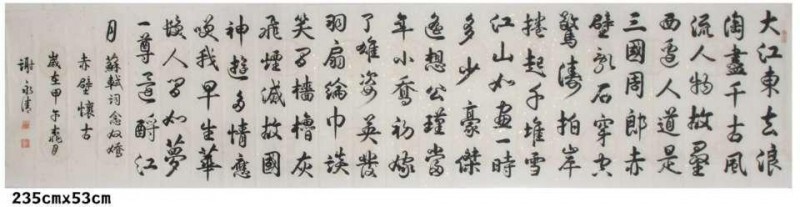 大江東去浪
淘盡千古風
流人物故壘
西邊人道是
三國周郎赤
壁亂石穿空
驚濤拍岸
捲起千堆雪
江山如畫一時
多少豪傑
遙想公瑾當
年小喬初嫁
了雄姿英發
羽扇綸巾談
笑間檣櫓灰
飛煙滅故國
神遊多情應
笑我早生華
髮人間如夢
一尊還酹江
月 蘇軾詞念奴嬌
赤壁懷古
歲在甲午月
謝永
235cmx53cm